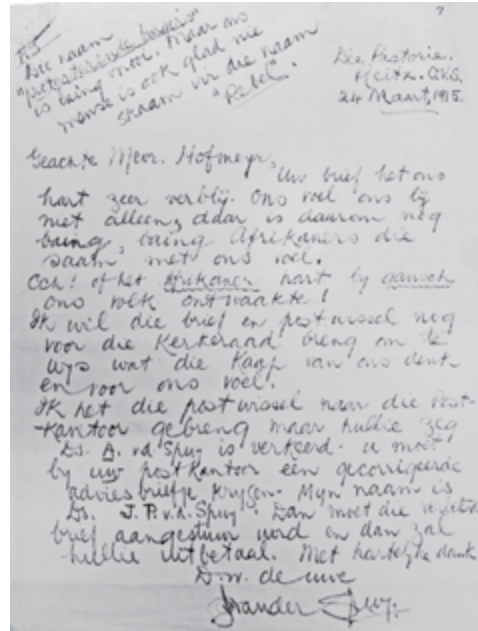 7
P.S.
Die naam
"protesterende burgers"
is baing mooi. Maar ons
mense is ook glad nie
skaam vir die naam
"Rebel".
Die Pastorie.
Reitz. O.V.S.
24 Maart, 1915.
Geachte Meor. Hofmeyr,
Uw brief het ons
hart zeer verblij. Ons voel ons is
niet alleen, daar is daarom nog
baing, baing Afrikaners die
saam met ons voel.
Och! of het Afrikaner hart by
ons volk ontwaakte!
Ik wil die brief en postwissel nog
voor die Kerkeraad breng om te
wys wat die Kaap van ons denk
en voor ons voel.
Ik het die postwissel naar die Post-
-kantoor gebreng maar hullie zeg
Ds. A. vd Spuy is verkeerd. u moet
by uw postkantoor een gecorrigeerde
adviesbriefje krygen. Myn naam is
Ds. J. P. v. d. Spuy. Dan moet die
brief aangestuur word en dan zal
hullie uitbetaal. Met hartelyke dank
D.w. de uwe
van der Spuy.